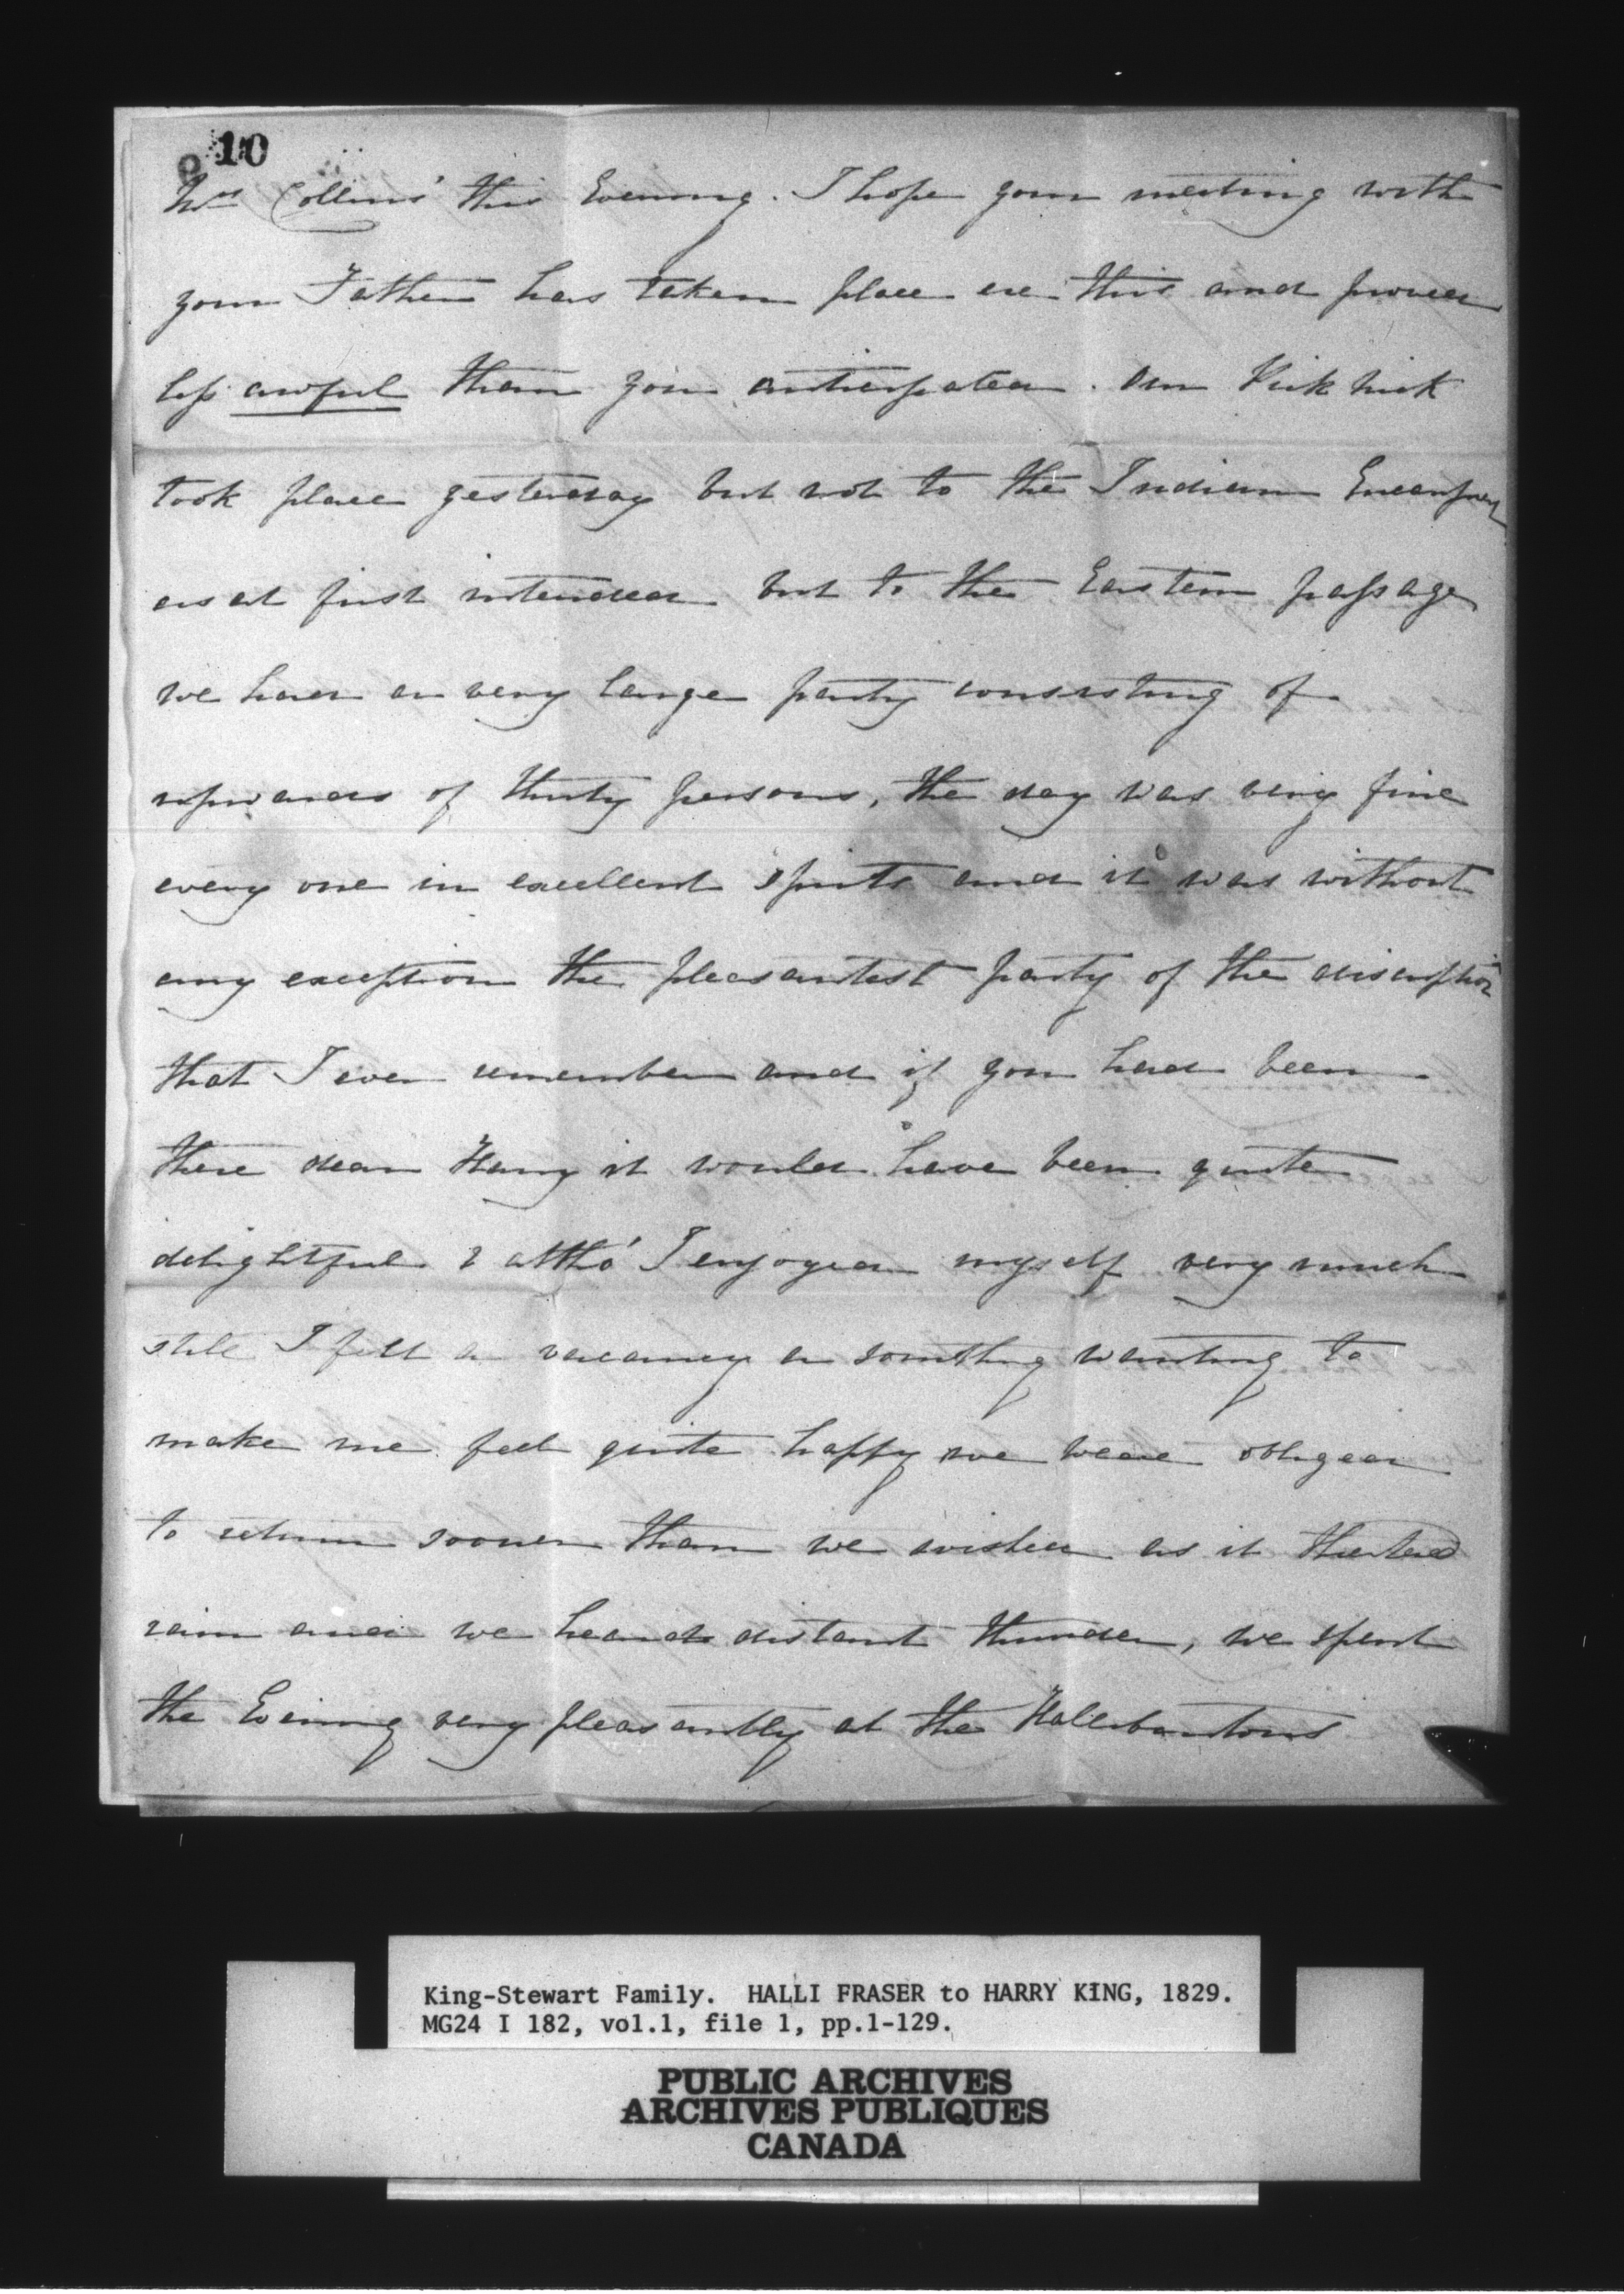 10
Mrs Collins' this Evening. I hope your meeting with
your Father has taken place ere this and proved
less awful than you anticipated. Our Pick nick
took place yesterday but not to the Indian Encampmen
as at first intended but to the Eastern passage
we had a very large party consisting of
upwards of thirty persons, the day was very fine
every one in excellent spirits and it was without
any exception the pleasantest party of the discription
that I ever remember and if you had been
there dear Harry it would have been quite
delightful & altho' I enjoyed myself very much
still I felt a vacancy a somthing wanting to
make me feel quite happy we were obliged
to return sooner than we wished as it
rain and we heard distant thunder, we spent
the Evening very pleasantly at the Halliburtons
King-Stewart Family. HALLI FRASER to HARRY KING, 1829.
MG24 I 182, vol.1, file 1, pp.1-129.
PUBLIC ARCHIVES
ARCHIVES PUBLIQUES
CANADA